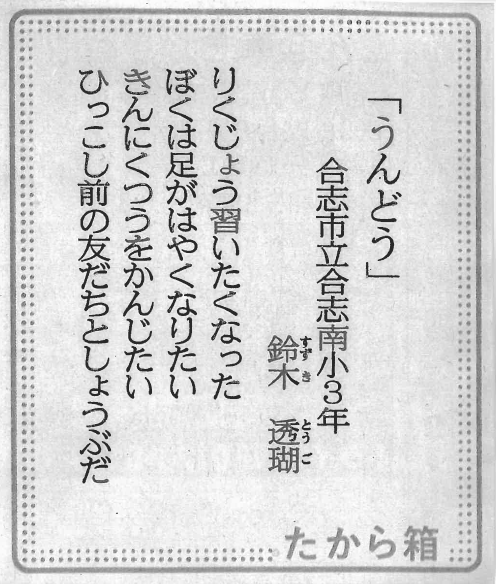 「うんどう」
合志市立合志南小3年
鈴木 透瑚
すずき とうご
りくじょう習いたくなった
ぼくは足がはやくなりたい
きんにくつうをかんじたい
ひっこし前の友だちとしょうぶだ
たから箱